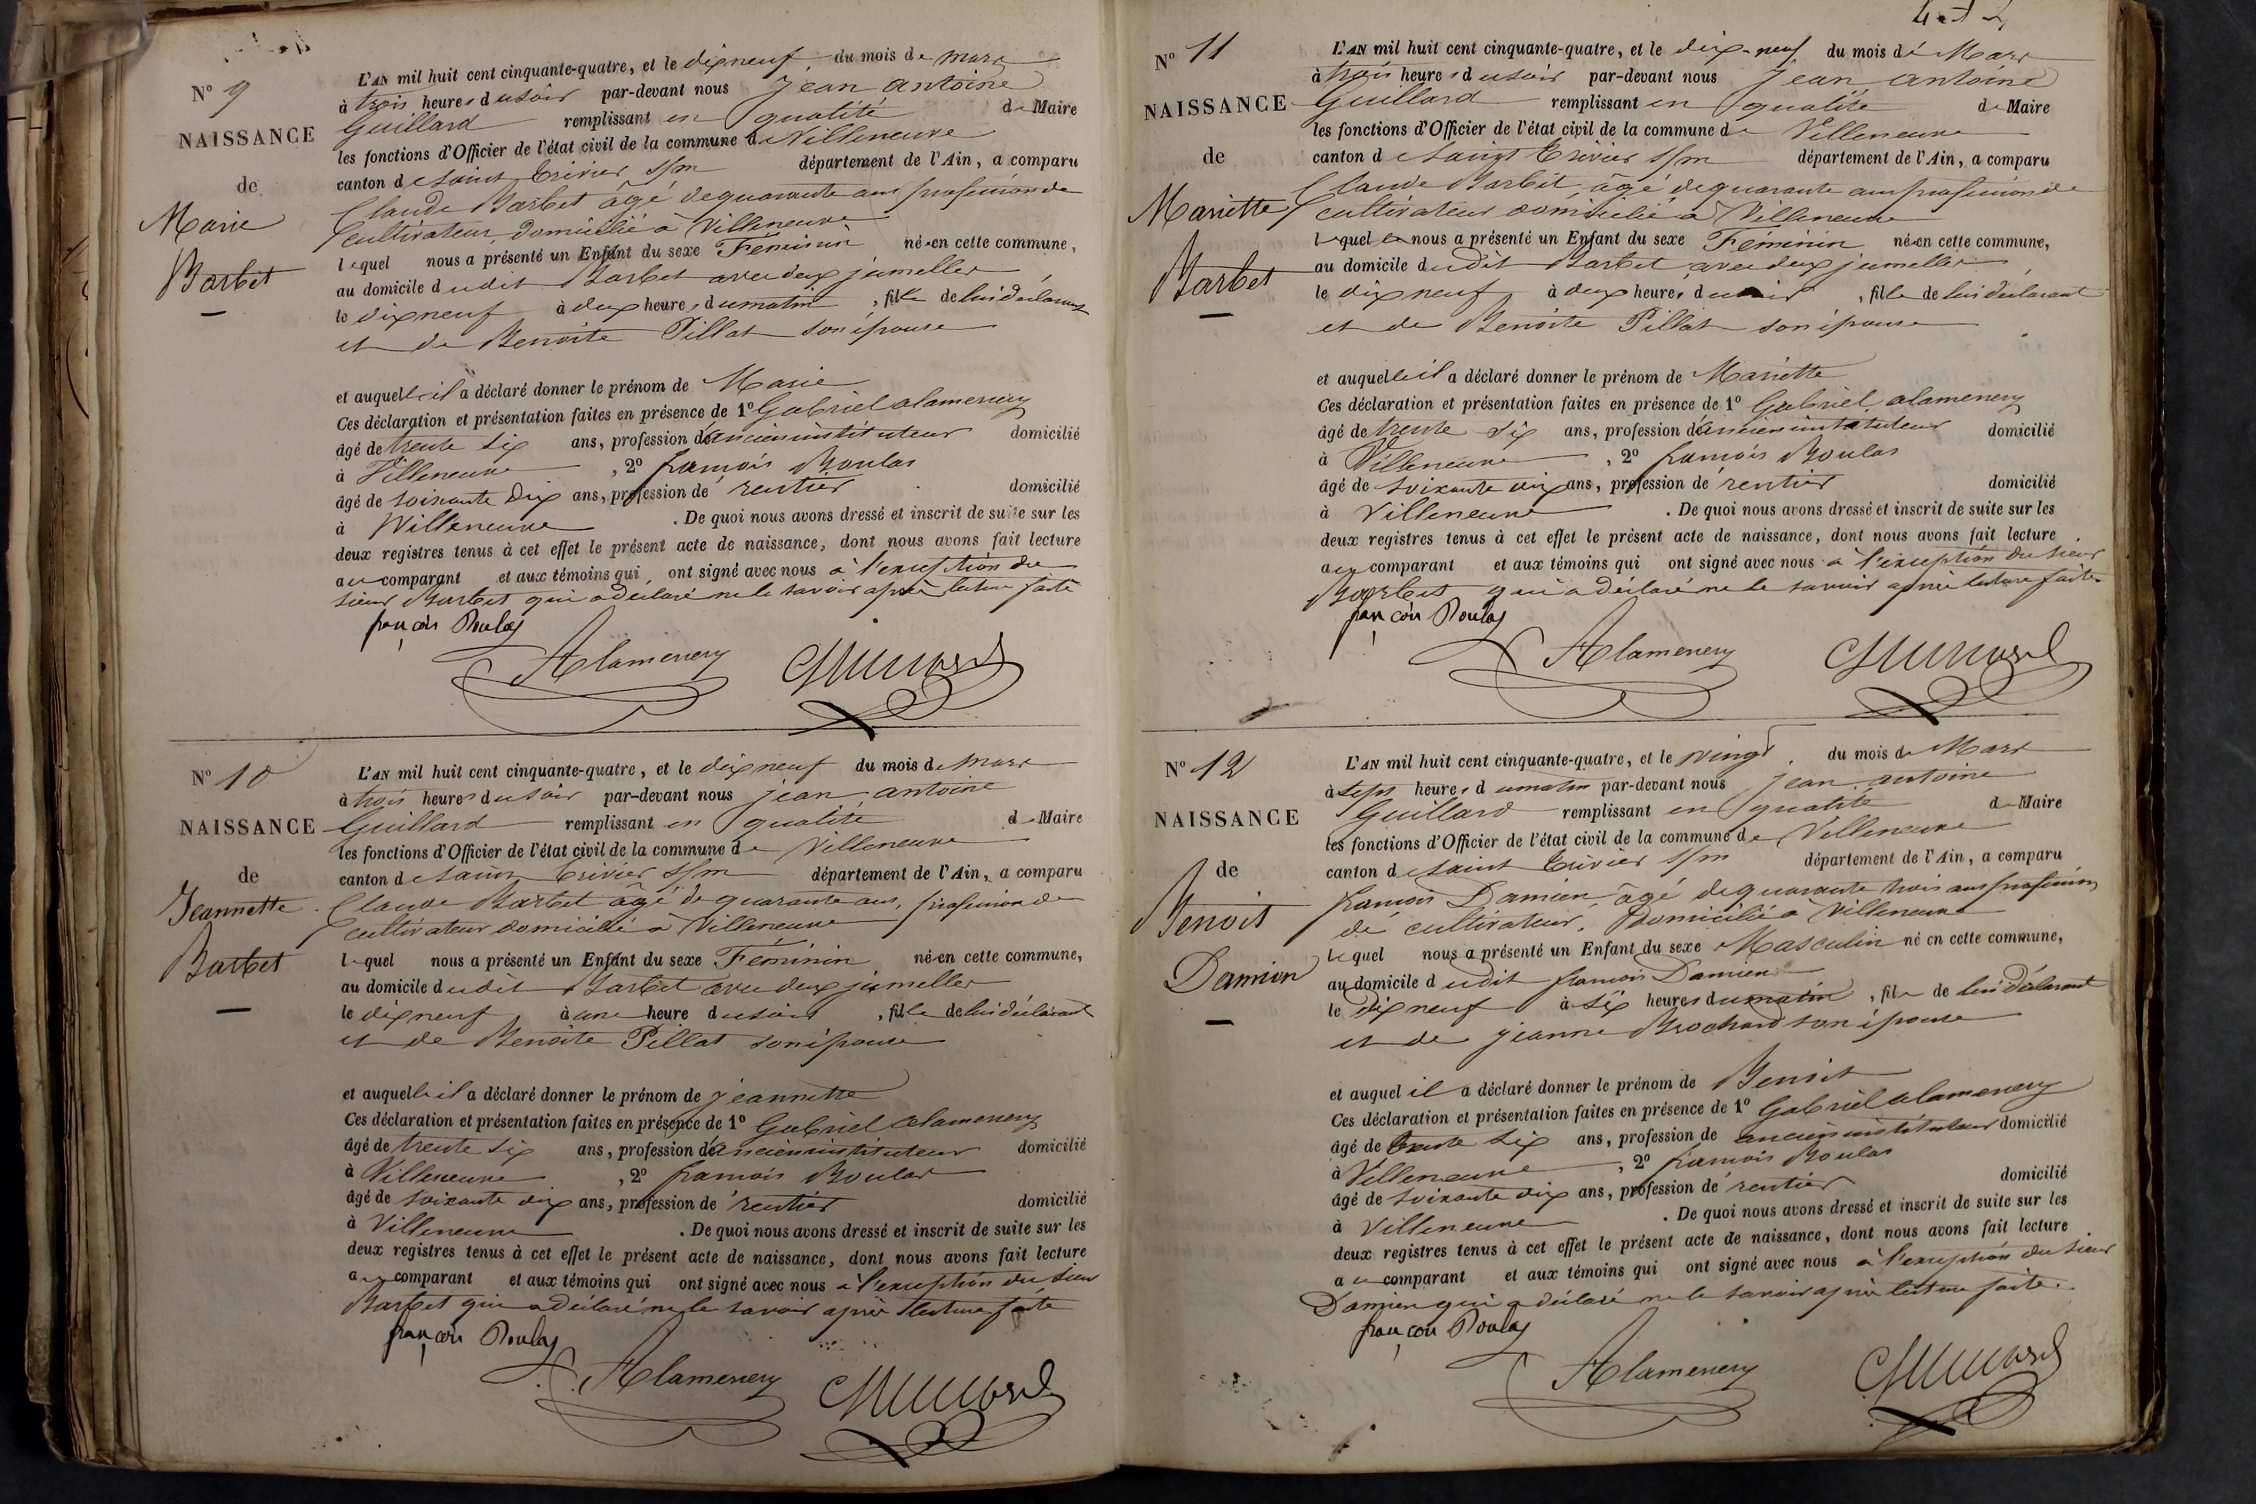 N° 9
NAISSANCE
de
Marie
Barbet
L'AN mil huit cent cinquante-quatre, et le dixneuf du mois de mars
à trois heures du soir par-devant nous Jean antoine
Guillard remplissant en qualité de Maire
les fonctions d'Officier de l'état civil de la commune de Villeneuve
canton de saint Trivier s/m département de l'Ain, a comparu
Claude Barbet âgé de quarante ans profession de
cultivateur, domicilié à Villeneuve
lequel nous a présenté un Enfant du sexe Féminin né en cette commune,
au domicile dudit Barbet avec deux jumelles
le dixneuf à deux heures du matin, fille de lui déclarant
et de Benoite Pillat son épouse
et auquelle il a déclaré donner le prénom de Marie
Ces déclaration et présentation faites en présence de 1° Gabriel alamenery
âgé de trente six ans, profession d'ancien instituteur domicilié
à Villeneuve, 2° francois Boulas
âgé de soixante dix ans, profession de rentier domicilié
à Villeneuve. De quoi nous avons dressé et inscrit de suite sur les
deux registres tenus à cet effet le présent acte de naissance, dont nous avons fait lecture
au comparant et aux témoins qui ont signé avec nous à l'exception du
sieur Barbet qui a déclaré ne le savoir après lecture faite
françois Boulas
Alamenery
N° 10
NAISSANCE
de
Jeannette
Barbet
L'AN mil huit cent cinquante-quatre, et le dixneuf du mois de mars
à trois heures du soir par-devant nous jean antoine
Guillard remplissant en qualité de Maire
les fonctions d'Officier de l'état civil de la commune de Villeneuve
canton de saint Trivier s/m département de l'Ain, a comparu
Claude Barbet âgé de quarante ans, profession de
cultivateur domicilié à Villeneuve
lequel nous a présenté un Enfant du sexe Féminin né en cette commune,
au domicile dudit Barbet avec deux jumelles
le dixneuf à une heure du soir, fille de lui déclarant
et de Benoite Pillat son épouse
et auquelle il a déclaré donner le prénom de jeannette
Ces déclaration et présentation faites en présence de 1° Gabriel alamenery
âgé de trente six ans, profession d'ancien instituteur domicilié
à Villeneuve, 2° francois Boulas
âgé de soixante dix ans, profession de rentier domicilié
à Villeneuve. De quoi nous avons dressé et inscrit de suite sur les
deux registres tenus à cet effet le présent acte de naissance, dont nous avons fait lecture
au comparant et aux témoins qui ont signé avec nous à l'exception du sieur
Barbet qui a déclaré ne le savoir après lecture faite
françois Boulas
Alamenery
N° 11
NAISSANCE
de
Mariette
Barbet
L'AN mil huit cent cinquante-quatre, et le dix-neuf du mois de Mars
à trois heures du soir par-devant nous Jean antoine
Guillard remplissant en qualité de Maire
les fonctions d'Officier de l'état civil de la commune de Villeneuve
canton de saint Trivier s/m département de l'Ain, a comparu
Claude Barbet âgé de quarante ans profession de
cultivateur domicilié à Villeneuve
lequel nous a présenté un Enfant du sexe Féminin né en cette commune,
au domicile dudit Barbet avec deux jumelles
le dixneuf à deux heures du soir, fille de lui déclarant
et de Benoite Pillat son épouse
et auquelle il a déclaré donner le prénom de Mariette
Ces déclaration et présentation faites en présence de 1° Gabriel alamenery
âgé de trente six ans, profession d'ancien instituteur domicilié
à Villeneuve, 2° francois Boulas
âgé de soixante dix ans, profession de rentier domicilié
à Villeneuve. De quoi nous avons dressé et inscrit de suite sur les
deux registres tenus à cet effet le présent acte de naissance, dont nous avons fait lecture
au comparant et aux témoins qui ont signé avec nous à l'exception du sieur
Barbet qui a déclaré ne le savoir après lecture faite.
françois Boulas
Alamenery
N° 12
NAISSANCE
de
Benoit
Damien
L'AN mil huit cent cinquante-quatre, et le vingt du mois de Mars
à sept heures du matin par-devant nous jean antoine
Guillard remplissant en qualité de Maire
les fonctions d'Officier de l'état civil de la commune de Villeneuve
canton de saint Trivier s/m département de l'Ain, a comparu
francois Damien, âgé de quarante trois ans profession
de cultivateur, Domicilié à Villeneuve
lequel nous a présenté un Enfant du sexe Masculin né en cette commune,
au domicile dudit francois Damien
le dixneuf à six heures du matin, fils de lui Déclarant
et de jeanne Brochard son épouse
et auquel il a déclaré donner le prénom de Benoit
Ces déclaration et présentation faites en présence de 1° Gabriel alamenery
âgé de trente six ans, profession de ancien instituteur domicilié
à Villeneuve, 2° francois Boulas
âgé de soixante dix ans, profession de rentier domicilié
à Villeneuve. De quoi nous avons dressé et inscrit de suite sur les
deux registres tenus à cet effet le présent acte de naissance, dont nous avons fait lecture
au comparant et aux témoins qui ont signé avec nous à l'exception du sieur
Damien qui a déclaré ne le savoir après lecture faite.
françois Boulas
Alamenery